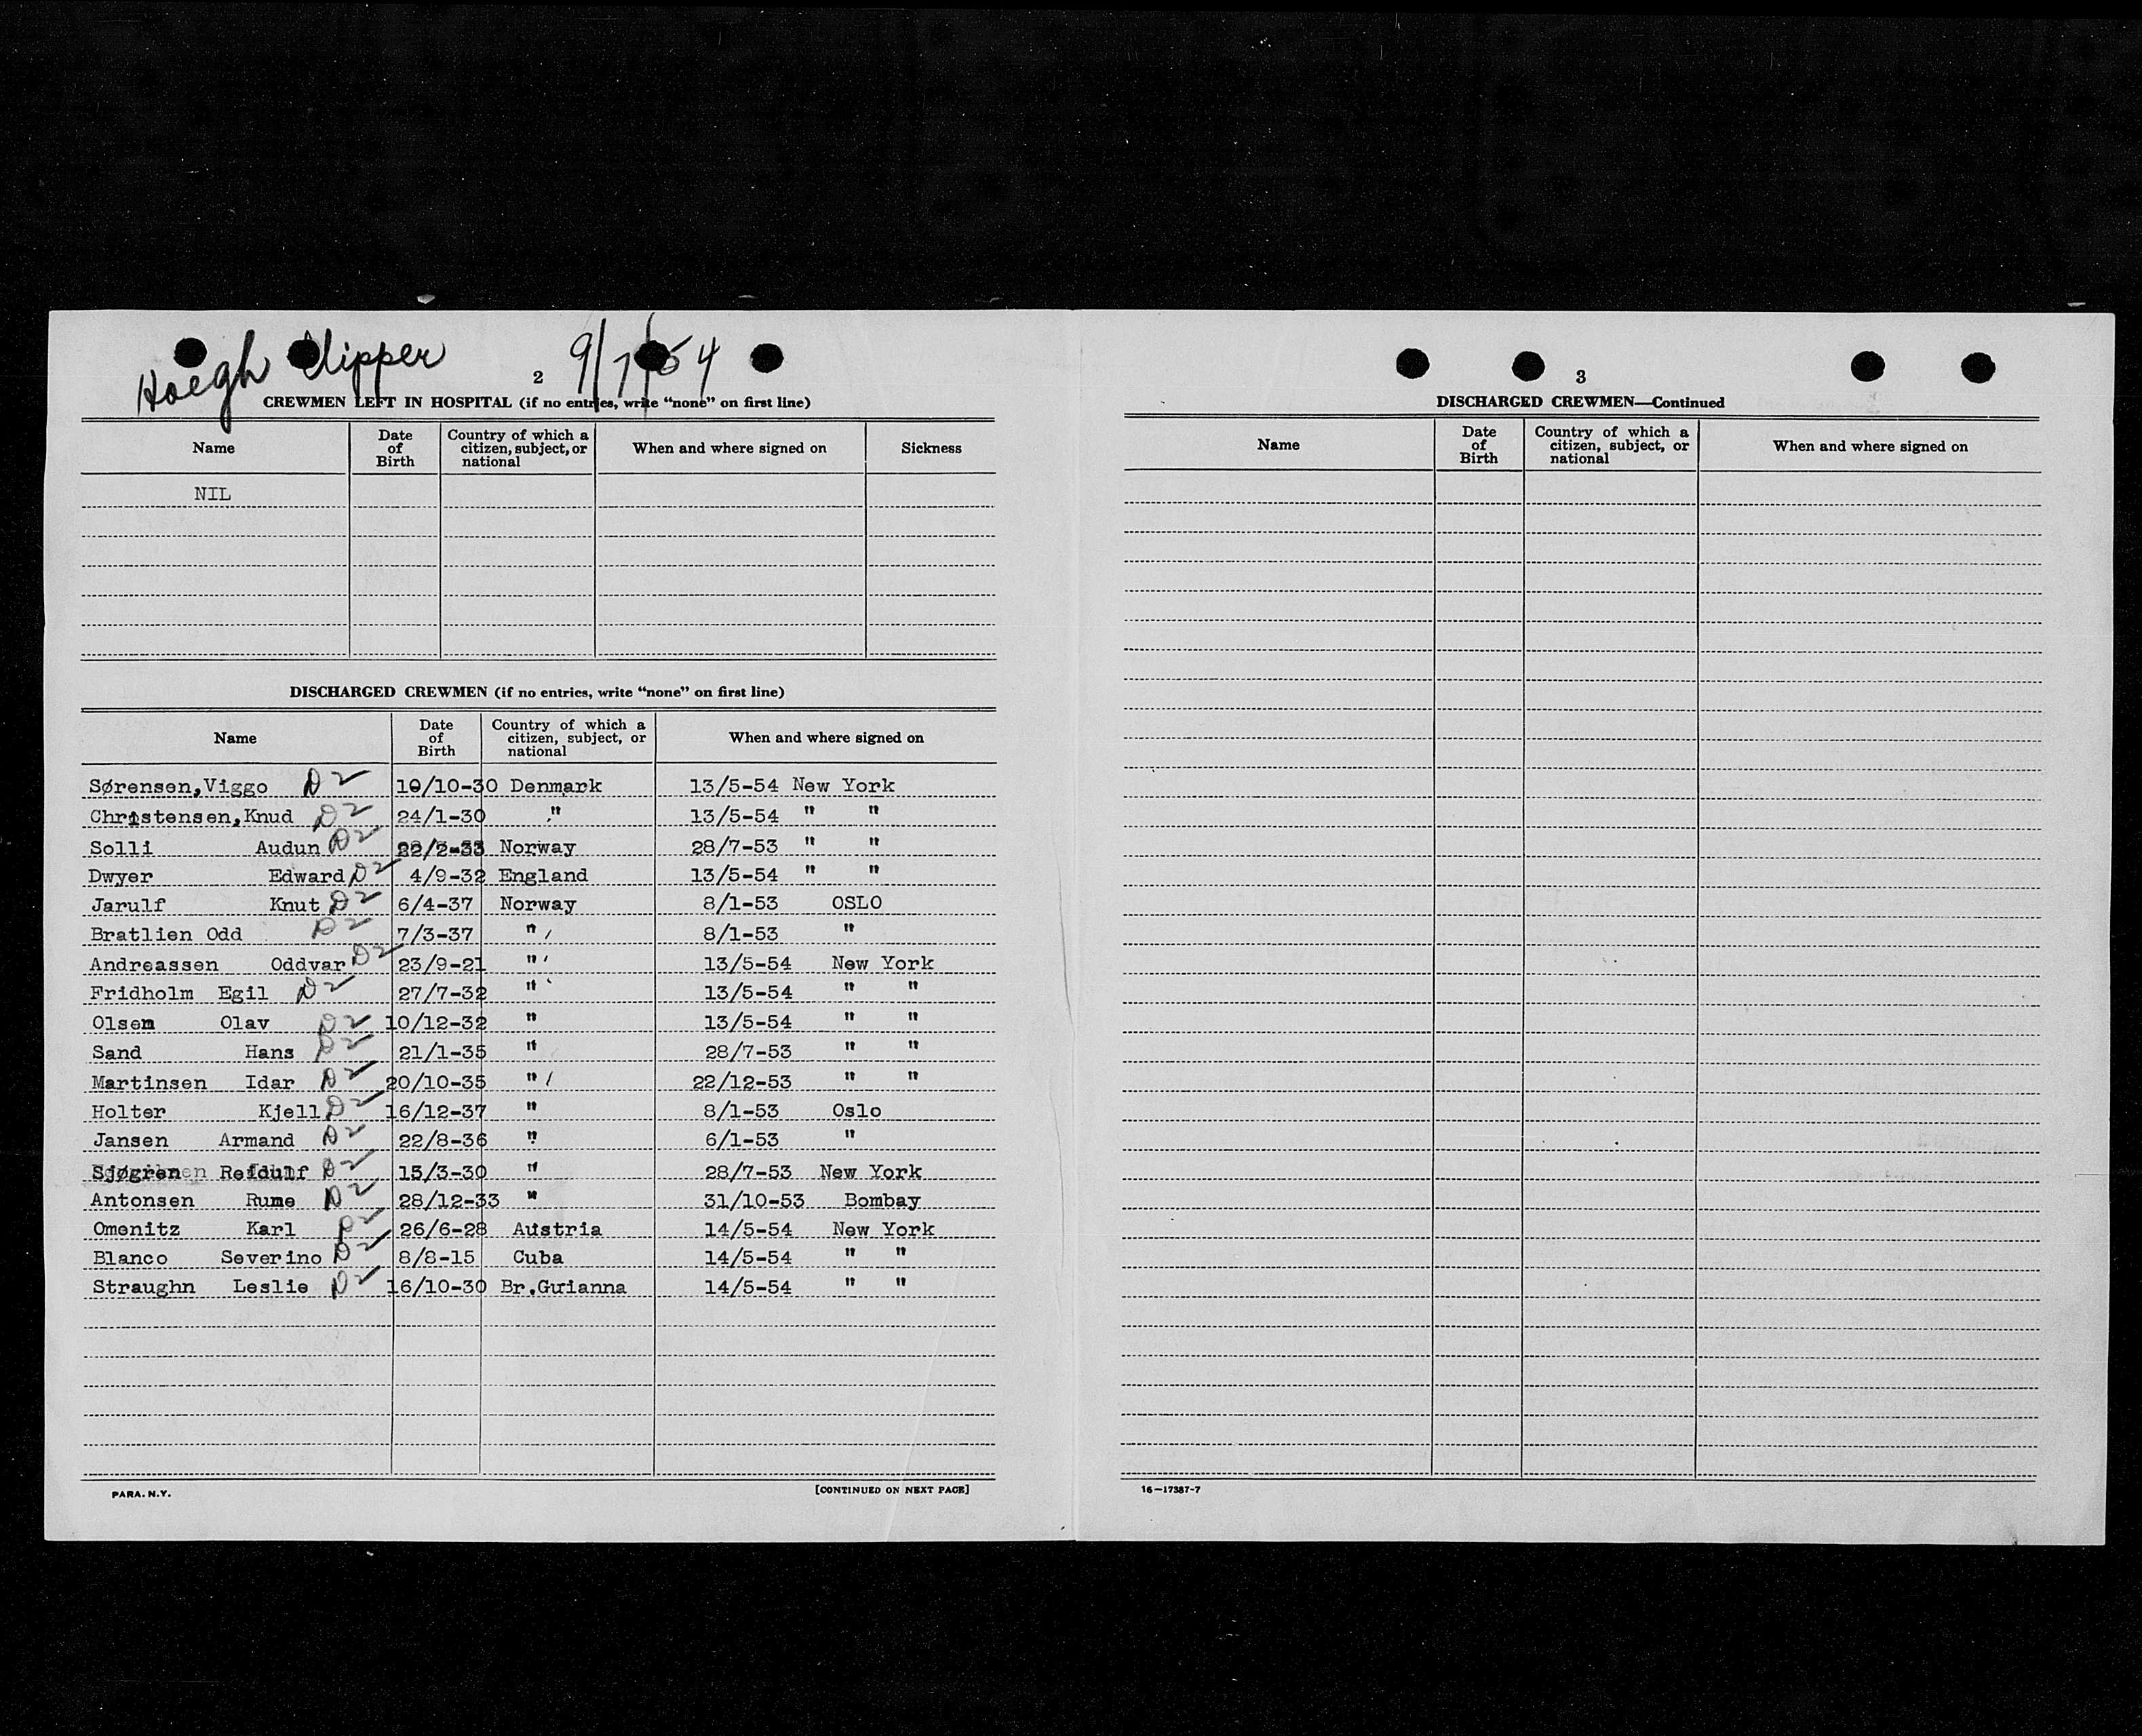 Hoegh Clipper 9/7/54
2
CREWMEN LEFT IN HOSPITAL (if no entries, write “none” on first line)
Name Date of Birth Country of which a citizen, subject, or national When and where signed on Sickness
NIL
DISCHARGED CREWMEN (if no entries, write “none” on first line)
Name Date of Birth Country of which a citizen, subject, or national When and where signed on
Sørensen,Viggo D2 10/10-30 Denmark 13/5-54 New York
Christensen,Knud D2 24/1-30 " 13/5-54 " "
Solli Audun D2 22/2-33 Norway 28/7-53 " "
Dwyer Edward D2 4/9-32 England 13/5-54 " "
Jarulf Knut D2 6/4-37 Norway 8/1-53 OSLO
Bratlien Odd D2 7/3-37 " 8/1-53 "
Andreassen Oddvar D2 23/9-21 " 13/5-54 New York
Fridholm Egil D2 27/7-32 " 13/5-54 " "
Olsen Olav D2 10/12-32 " 13/5-54 " "
Sand Hans D2 21/1-35 " 28/7-53 " "
Martinsen Idar D2 20/10-35 " 22/12-53 " "
Holter Kjell D2 16/12-37 " 8/1-53 Oslo
Jansen Armand D2 22/8-36 " 6/1-53 "
Sjøgren Reidulf D2 15/3-30 " 28/7-53 New York
Antonsen Rune D2 28/12-33 " 31/10-53 Bombay
Omenitz Karl D2 26/6-28 Austria 14/5-54 New York
Blanco Severino D2 8/8-15 Cuba 14/5-54 " "
Straughn Leslie D2 16/10-30 Br.Guianna 14/5-54 " "
PARA. N.Y. [CONTINUED ON NEXT PAGE]
3
DISCHARGED CREWMEN—Continued
Name Date of Birth Country of which a citizen, subject, or national When and where signed on
16—17387-7